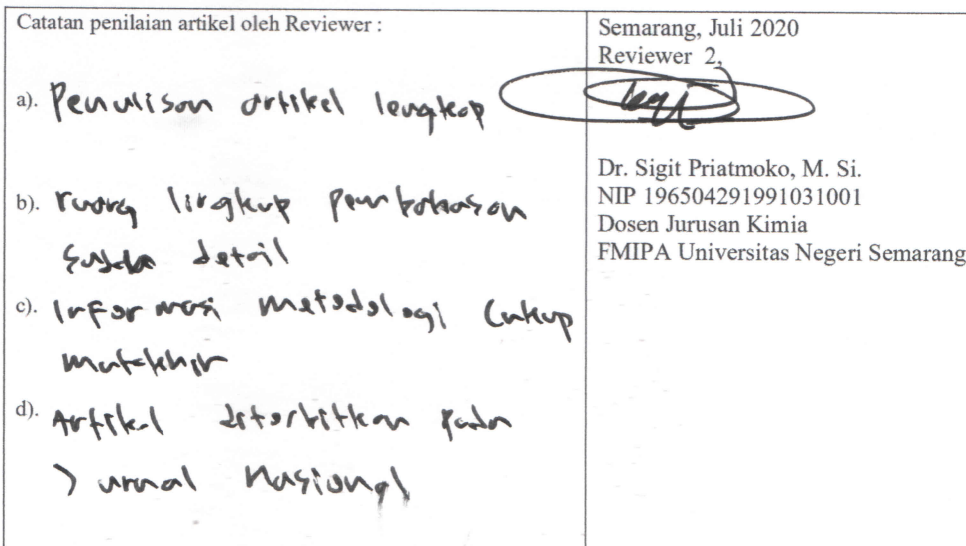 Catatan penilaian artikel oleh Reviewer :
a). Penulisan artikel lengkap
b). ruang lingkup pembahasan
sudah detail
c). Informasi metodologi Cukup
mutakhir
d). Artikel diterbitkan pada
Jurnal Nasional
Semarang, Juli 2020
Reviewer 2,
Dr. Sigit Priatmoko, M. Si.
NIP 196504291991031001
Dosen Jurusan Kimia
FMIPA Universitas Negeri Semarang